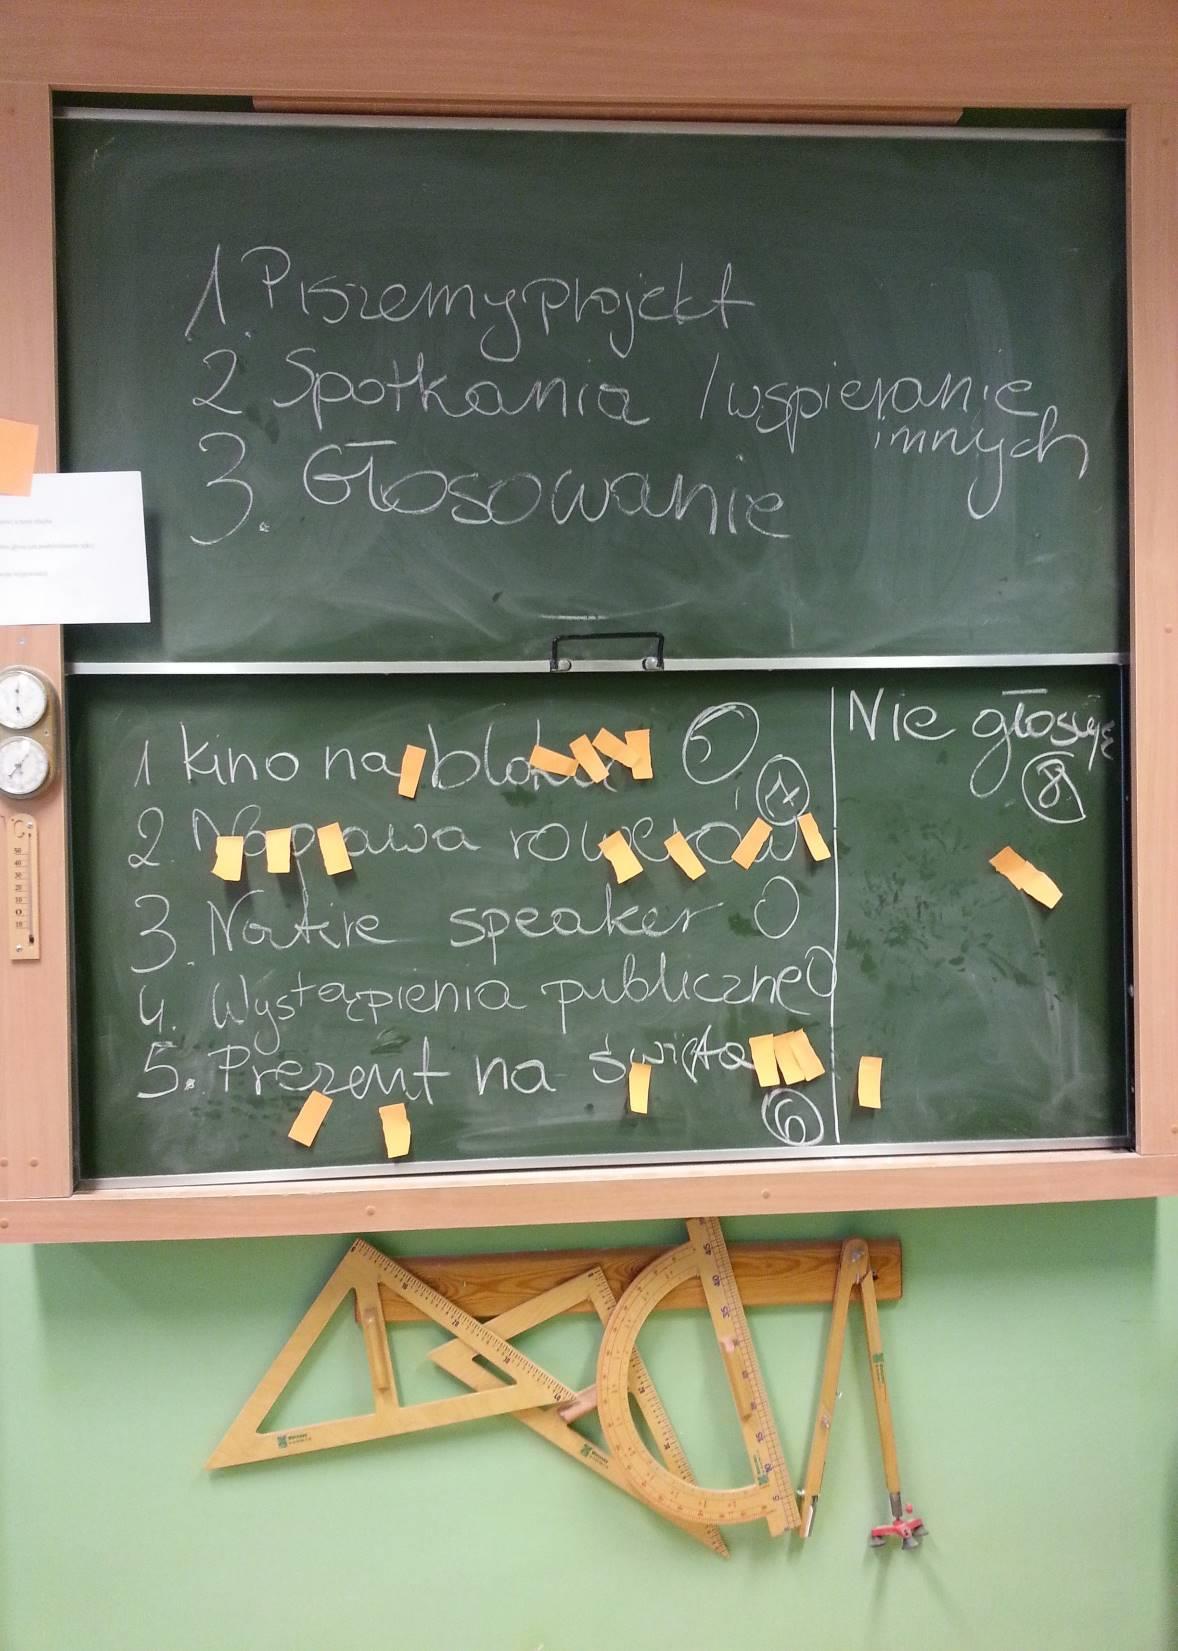 1. Piszemy projekt
2. Spotkania / wspieranie
innych
3. Głosowanie
1 kino na bloku 5
2. Naprawa rowerów 7
3. Native speaker 0
4. Wystąpienia publiczne 0
5. Prezent na święta
6
Nie głosuję
8